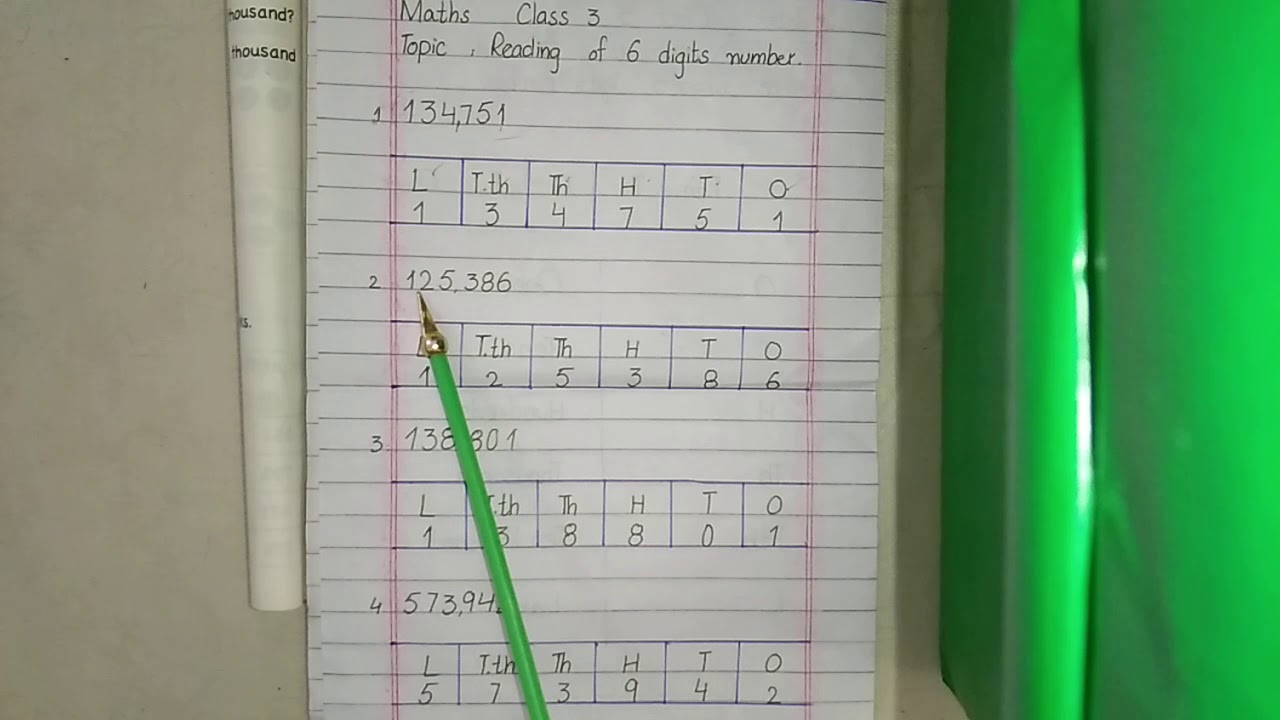 housand?
thousand
Maths Class 3
Topic : Reading of 6 digits number.
1 134,751
L T.th Th H T O
1 3 4 7 5 1
2 125,386
T.th Th H T O
1 2 5 3 8 6
3. 138,801
L T.th Th H T O
1 3 8 8 0 1
4 573,94
L T.th Th H T O
5 7 3 9 4 2